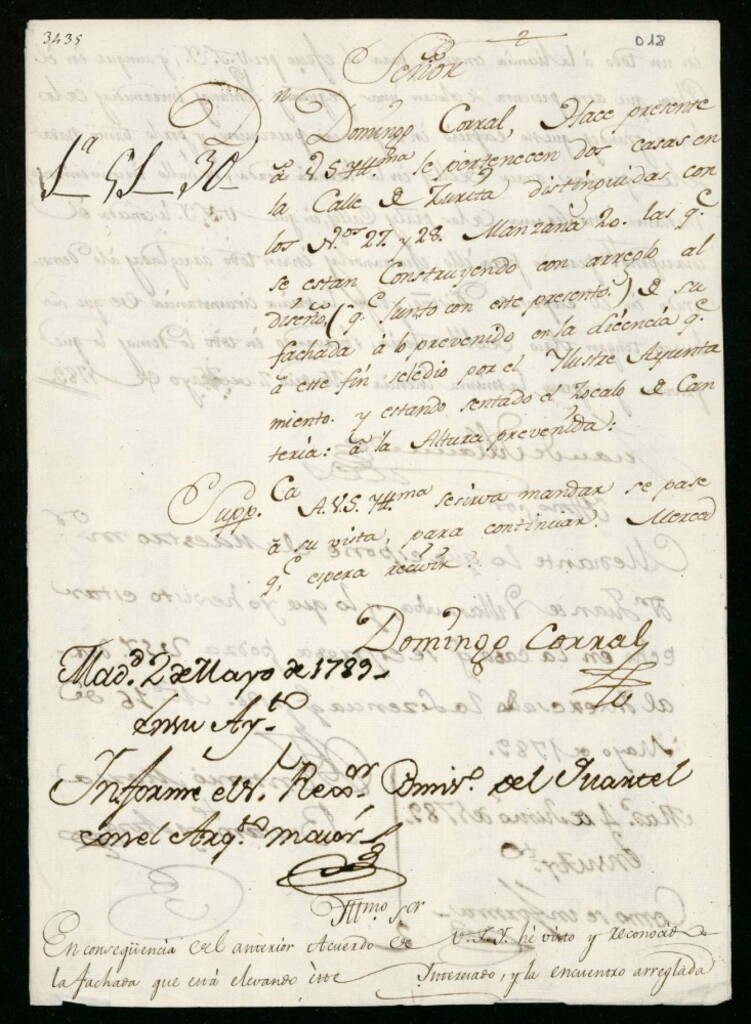 3435
018
2
Señor
Domingo Corral, Hace presente
â V.S. Yllma se pertenecen dos casas en
la Calle de Zurita distinguidas con
los Nos. 27. y 28. Manzana 20. las q.e
se estan Construyendo con arreglo al
diseño, (q.e Junto con este presento.) de su
fachada â lo prevenido en la licencia q.e
â este fin seledio por el Ilustre Ayunta
miento. y estando sentado el Zocalo de Can
teria: â la Altura prevenida:
Supp.ca A.V.S. Yllma se sirva mandar se pase
â su vista, para continuar. Merced
q.e espera recivir.
Domingo Corral
Mad.d 2 de Mayo de 1789.
En su Ay.to
Informe el S.r Rexor. Comis.o del Quartel
con el Arq.to maior
Yllmo. Sor
En conseqüencia del anterior Acuerdo de V.S.Y. hé visto y reconocido
la fachada que està elevando este Interesado, y la encuentro arreglada